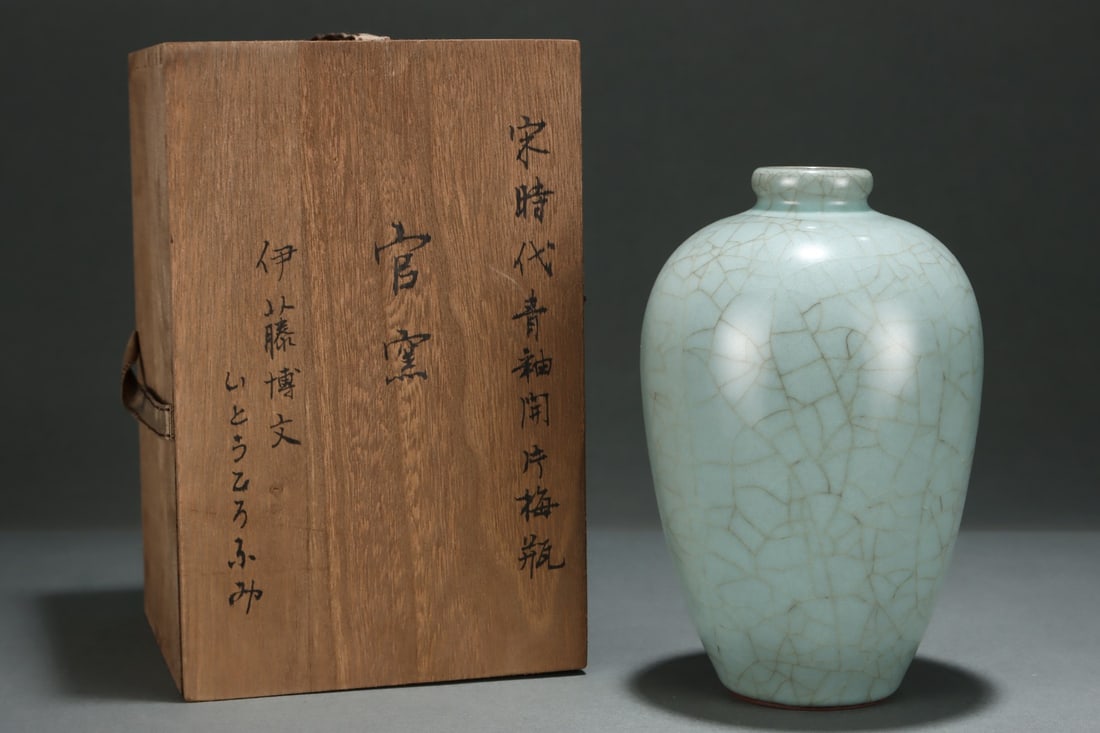 宋時代青袖開片梅瓶
官窯
伊藤博文
いとうひろふみ